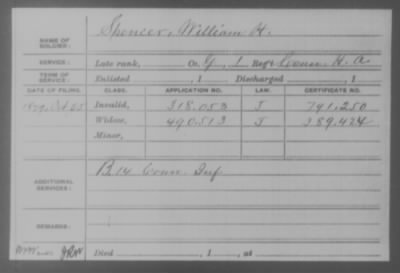 NAME OF SOLDIER: Spencer, William H.
SERVICE: Late rank, Co. G, 1 Reg't Conn. H. A.
TERM OF SERVICE: Enlisted , 1 Discharged , 1
DATE OF FILING. CLASS. APPLICATION NO. LAW. CERTIFICATE NO.
Invalid, 318.053 J 791.250
Widow, 490.513 J 389.424
Minor,
ADDITIONAL SERVICES: B 14 Conn. Inf
REMARKS:
Died , 1 , at